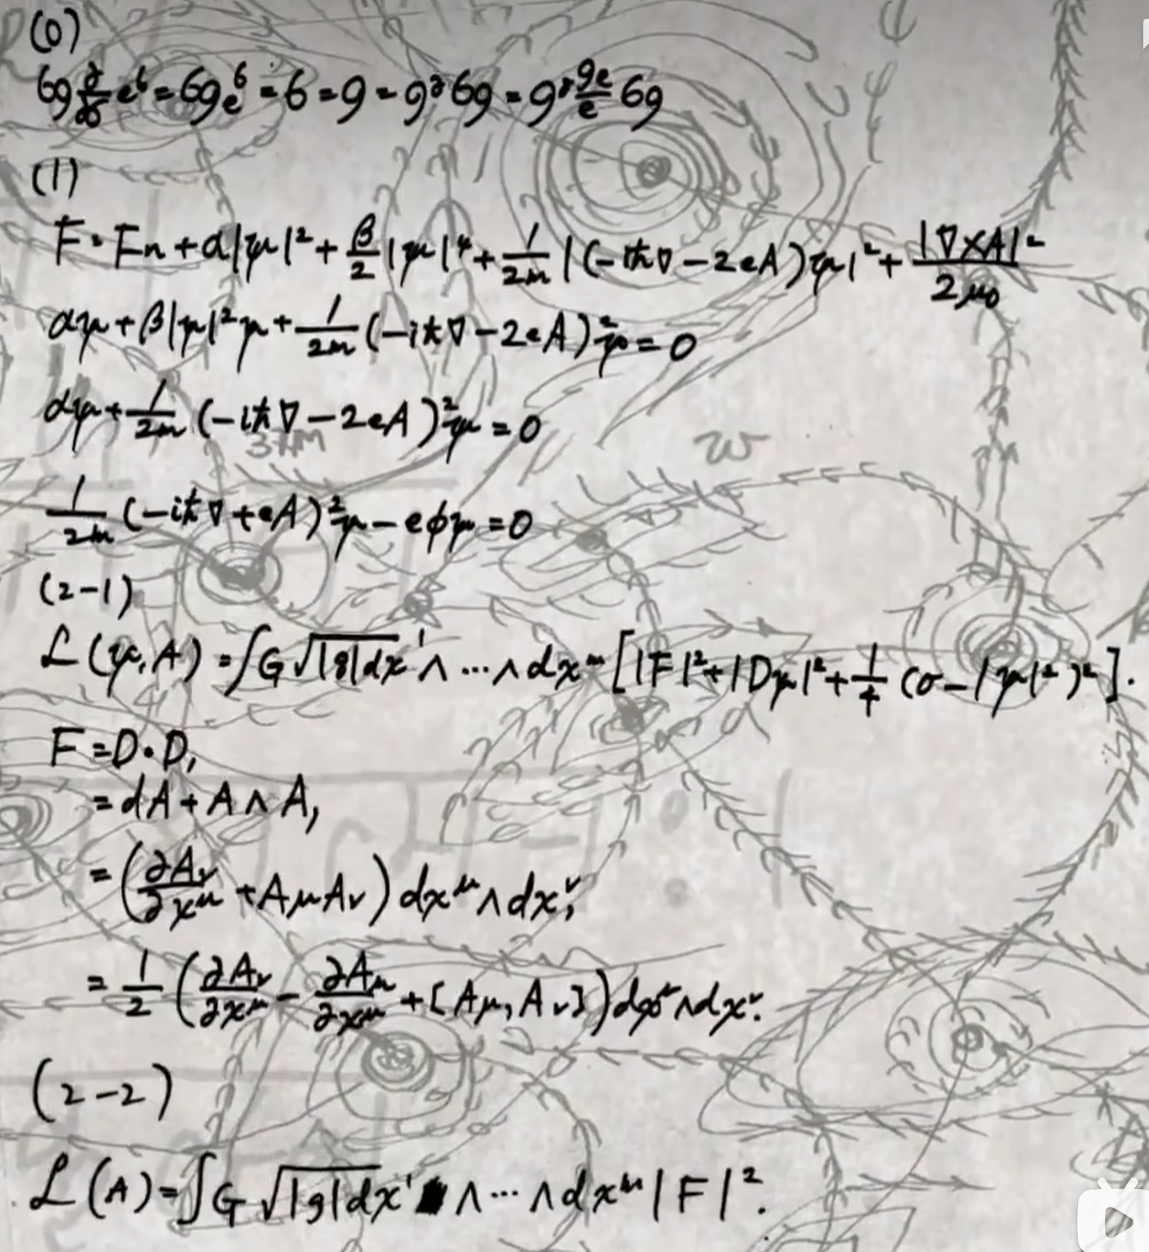 (0)
6g ∂/∂6 e⁶ = 6g e⁶ = 6 = 9 = 9ᵟ 6g = 9ᵟ ge/e 6g
(1)
F = Fn + α|ψ|² + β/2 |ψ|⁴ + 1/2m |(-iħ∇-2eA)ψ|² + |∇×A|²/2μ₀
αψ + β|ψ|²ψ + 1/2m (-iħ∇-2eA)²ψ = 0
αψ + 1/2m (-iħ∇-2eA)²ψ = 0
1/2m (-iħ∇+eA)²ψ - eφψ = 0
(2-1)
ℒ(ψ,A) = ∫G √|g| dx¹∧...∧dxᵐ [|F|²+|Dψ|²+1/4 (σ-|ψ|²)²].
F = D∘D,
= dA + A∧A,
= (∂Aν/∂xᵘ + AμAν) dxᵘ∧dxᵛ,
= 1/2 (∂Aν/∂xᵘ - ∂Aμ/∂xᵘ + [Aμ, Aν]) dxᵘ∧dxᵛ.
(2-2)
ℒ(A) = ∫G √|g| dx¹ ∧...∧dxᵐ |F|².